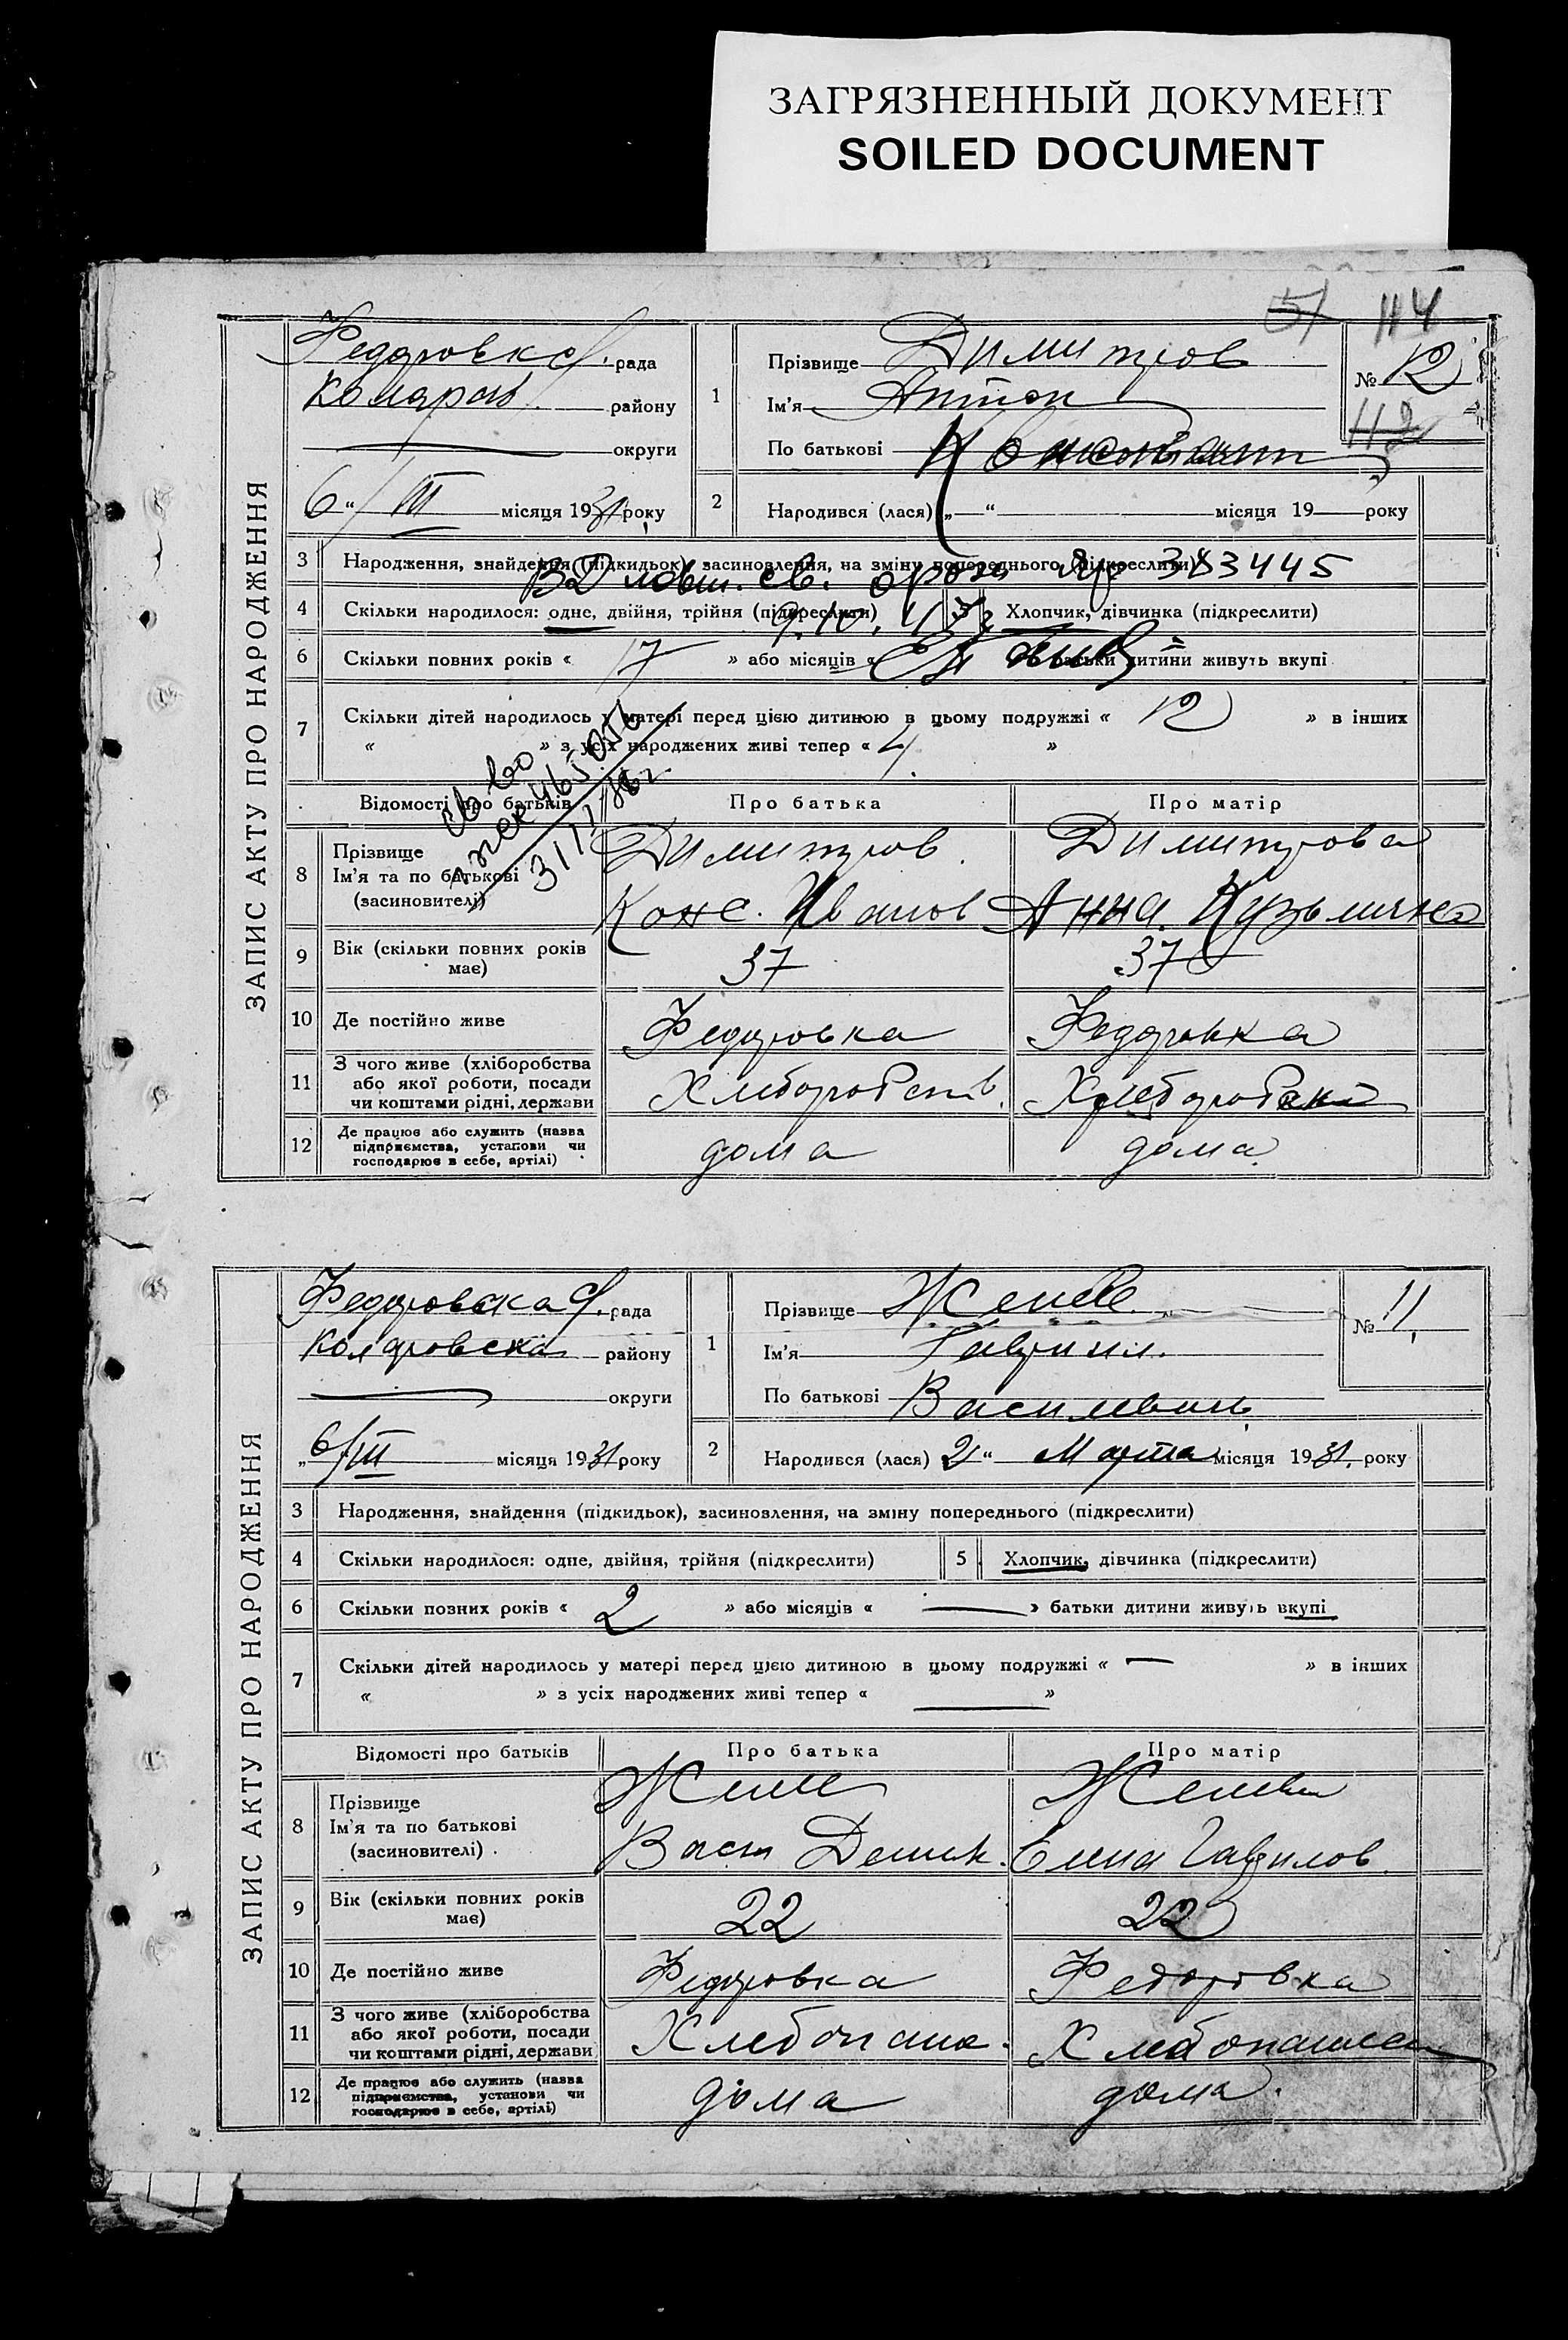 ЗАГРЯЗНЕННЫЙ ДОКУМЕНТ
SOILED DOCUMENT
51 114
ЗАПИС АКТУ ПРО НАРОДЖЕННЯ
Федоровка рада
Коляров. району
округи
6 “ III місяця 1931 року
1
Прізвище Димитров
Ім'я Антон
По батькові
№ 12
112
2 Народився (лася) „ “ місяця 19 року
3 Народження, знайдення (підкидьок), засиновлення, на зміну попереднього (підкреслити)
383445
4 Скільки народилося: одне, двійня, трійня (підкреслити) 5 Хлопчик, дівчинка (підкреслити)
6 Скільки повних років « 17 » або місяців « батьки дитини живуть вкупі
7 Скільки дітей народилось у матері перед цією дитиною в цьому подружжі « 12 » в інших
« » з усіх народжених живі тепер « 4 »
Відомості про батьків Про батька Про матір
8 Прізвище
Ім'я та по батькові
(засиновителі)
Димитров Димитрова
Конс. Иванов Анна Кузьминс
9 Вік (скільки повних років має) 37 37
10 Де постійно живе Федоровка Федоровка
11 З чого живе (хліборобства
або якої роботи, посади
чи коштами рідні, держави
12 Де працює або служить (назва
підприємства, установи чи
господарює в себе, артілі)
дома дома
ЗАПИС АКТУ ПРО НАРОДЖЕННЯ
Федоровска рада
Коляровска району
округи
„ 6/III місяця 1931 року
1
Прізвище
Ім'я Гавриил.
По батькові Васильевич
№ 11
2 Народився (лася) 21 “ Марта місяця 1931. року
3 Народження, знайдення (підкидьок), засиновлення, на зміну попереднього (підкреслити)
4 Скільки народилося: одне, двійня, трійня (підкреслити) 5 Хлопчик, дівчинка (підкреслити)
6 Скільки повних років « 2 » або місяців « — » батьки дитини живуть вкупі
7 Скільки дітей народилось у матері перед цією дитиною в цьому подружжі « — » в інших
« » з усіх народжених живі тепер « — »
Відомості про батьків Про батька Про матір
8 Прізвище
Ім'я та по батькові
(засиновителі)
Елена Гаврилов.
9 Вік (скільки повних років має) 22 22
10 Де постійно живе Федоровка Федоровка
11 З чого живе (хліборобства
або якої роботи, посади
чи коштами рідні, держави
12 Де працює або служить (назва
підприємства, установи чи
господарює в себе, артілі)
дома дома.